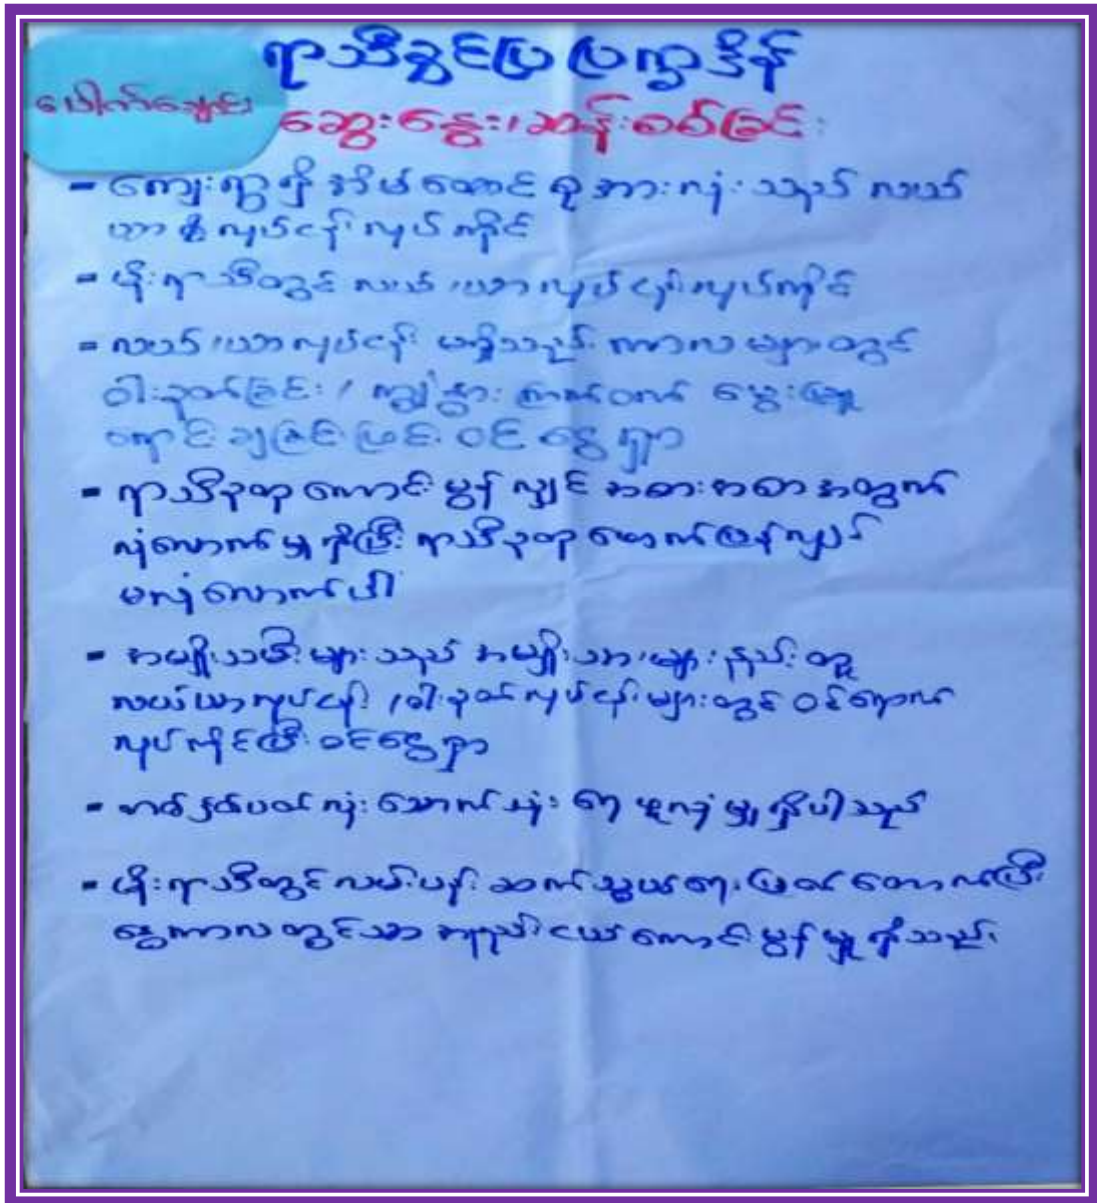 ရာသီခွင်ပြ ပြက္ခဒိန်
ပေါက်ချောင်း
ဆွေးနွေး/ဆန်းစစ်ခြင်း
- ကျေးရွာရှိ အိမ်ထောင်စုအားလုံးသည် လယ်
ယာ လုပ်ငန်းလုပ်ကိုင်
- မိုးရာသီတွင် လယ်/ယာလုပ်ငန်းလုပ်ကိုင်
- လယ်/ယာလုပ်ငန်း မရှိသည့် ကာလများတွင်
ဝါးခုတ်ခြင်း / ကျွဲ၊နွား ကြက်ဝက် မွေးမြူ
ရောင်းချခြင်းဖြင့် ဝင်ငွေရှာ
- ရာသီဥတုကောင်းမွန်လျှင် အစားအစာအတွက်
လုံလောက်မှုရှိပြီး ရာသီဥတုဖောက်ပြန်လျှင်
မလုံလောက်ပါ
- အမျိုးသမီးများသည် အမျိုးသားများနည်းတူ
လယ်ယာလုပ်ငန်း /ဝါးခုတ်လုပ်ငန်းများတွင် ဝင်ရောက်
လုပ်ကိုင်ပြီးဝင်ငွေရှာ
- တစ်နှစ်ပတ်လုံး သောက်သုံးရေ ဖူလုံမှုရှိပါသည်
- မိုးရာသီတွင် လမ်းပန်းဆက်သွယ်ရေးပြတ်တောက်ပြီး
နွေကာလတွင်သာ အနည်းငယ်ကောင်းမွန်မှုရှိသည်။